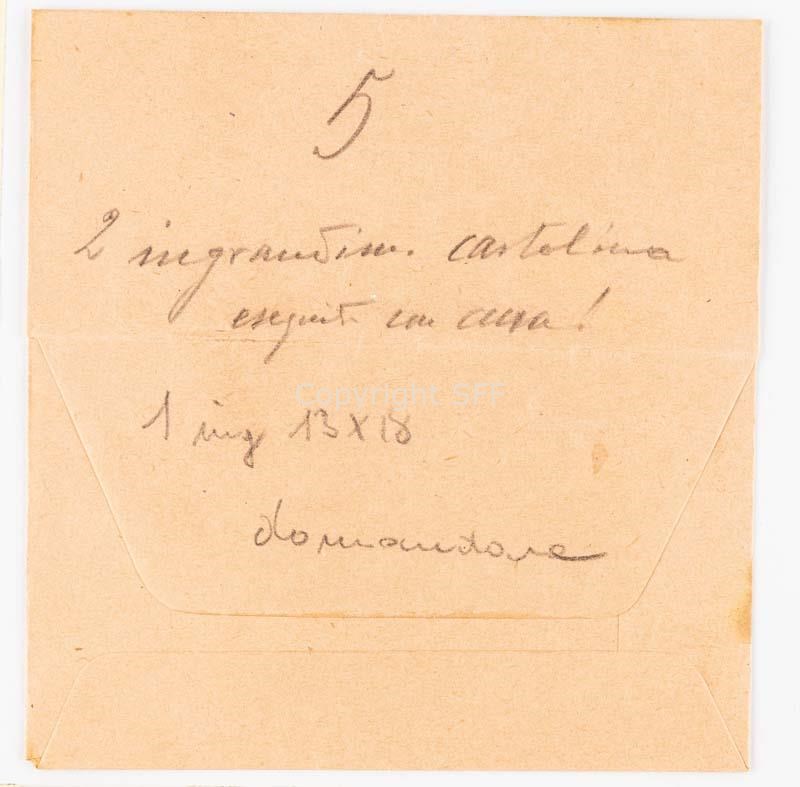 5
2 ingrandim. cartolina
eseguiti con cura!
Copyright SFF
1 ing 13X18
domandare